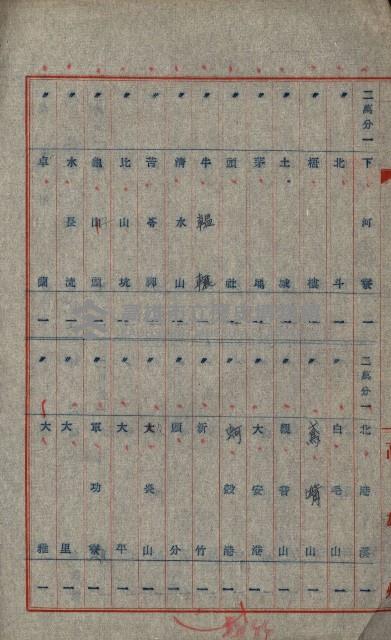 二萬分一 下河寮 一
〃 北斗 一
〃 梧棲 一
〃 土城 一
〃 茅埔 一
〃 頭社 一
〃 牛輼轆 一
〃 淸水山 一
〃 苦苓脚 一
〃 比山坑 一
〃 龜山頭 一
〃 水長流 一
〃 卓蘭 一
二萬分一 北港溪 一
〃 白毛山 一
〃 鳶嘴山 一
〃 觀音山 一
〃 大安港 一
〃 蚵殼港 一
〃 新竹 一
〃 頭分 一
〃 大尖山 一
〃 大平 一
〃 軍功寮 一
〃 大里 一
〃 大雅 一